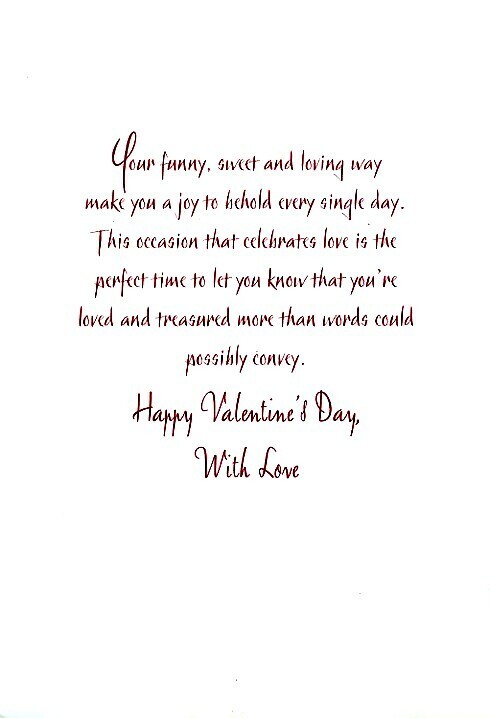 Your funny, sweet and loving way
make you a joy to behold every single day.
This occasion that celebrates love is the
perfect time to let you know that you're
loved and treasured more than words could
possibly convey.
Happy Valentine's Day,
With Love